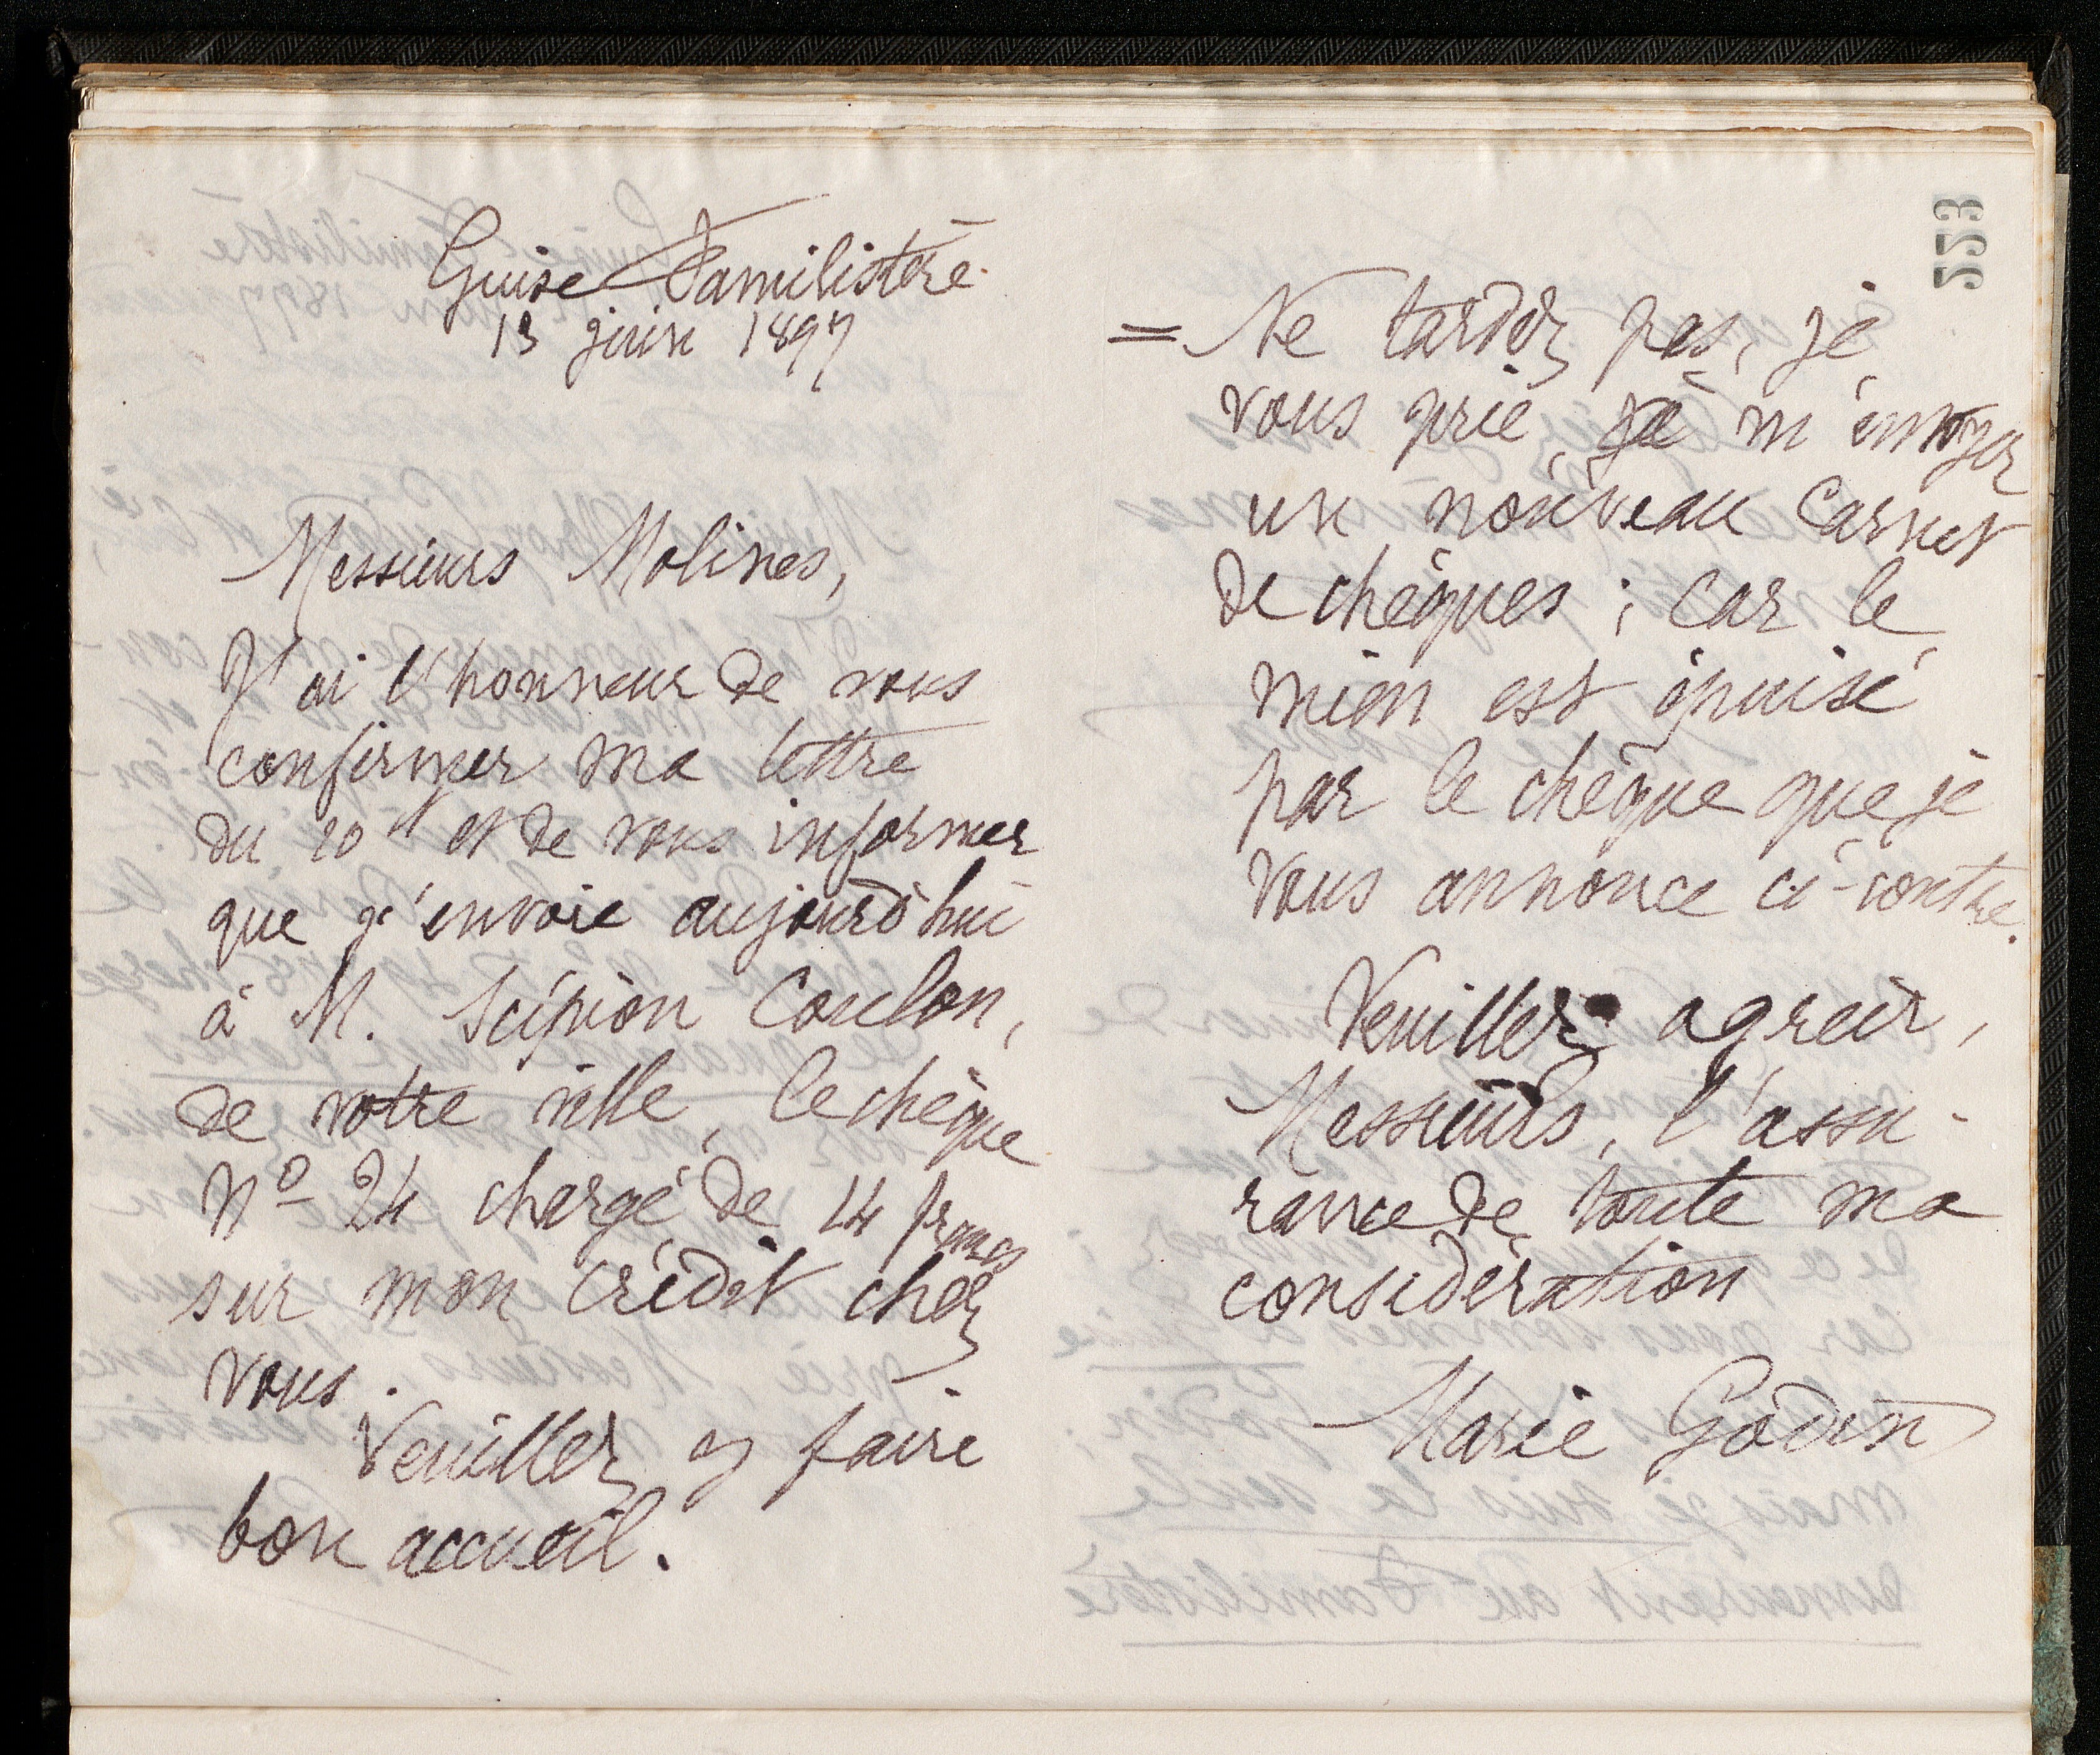 Guise Familistère
13 juin 1897
Messieurs Molines,
J'ai l'honneur de vous
confirmer ma lettre
du 10 et de vous informer
que j'envoie aujourd'hui
à M. Scipion Coulon,
de votre ville, le chèque
No 24 chargé de 14 francs
sur mon crédit chez
vous.
Veuillez y faire
bon accueil.
553
= Ne tardez pas, je
vous prie, à m'envoyer
un nouveau carnet
de chèques ; car le
mien est épuisé
par le chèque que je
vous annonce ci-contre.
Veuillez agréer,
Messieurs, l'assu-
rance de toute ma
considération
Marie Godin